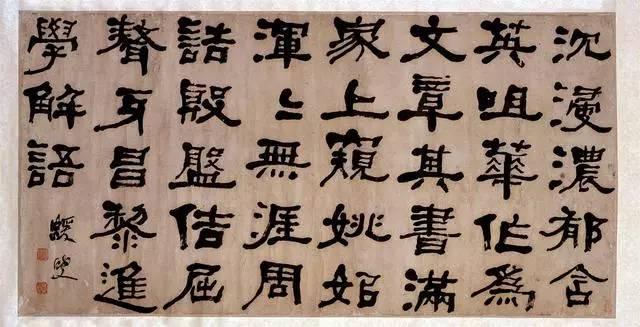 沈浸濃郁含
英咀華作爲
文章其書滿
家上窺姚姒
渾〻無涯周
誥殷盤佶屈
聱牙昌黎進
學解語
蝯叟